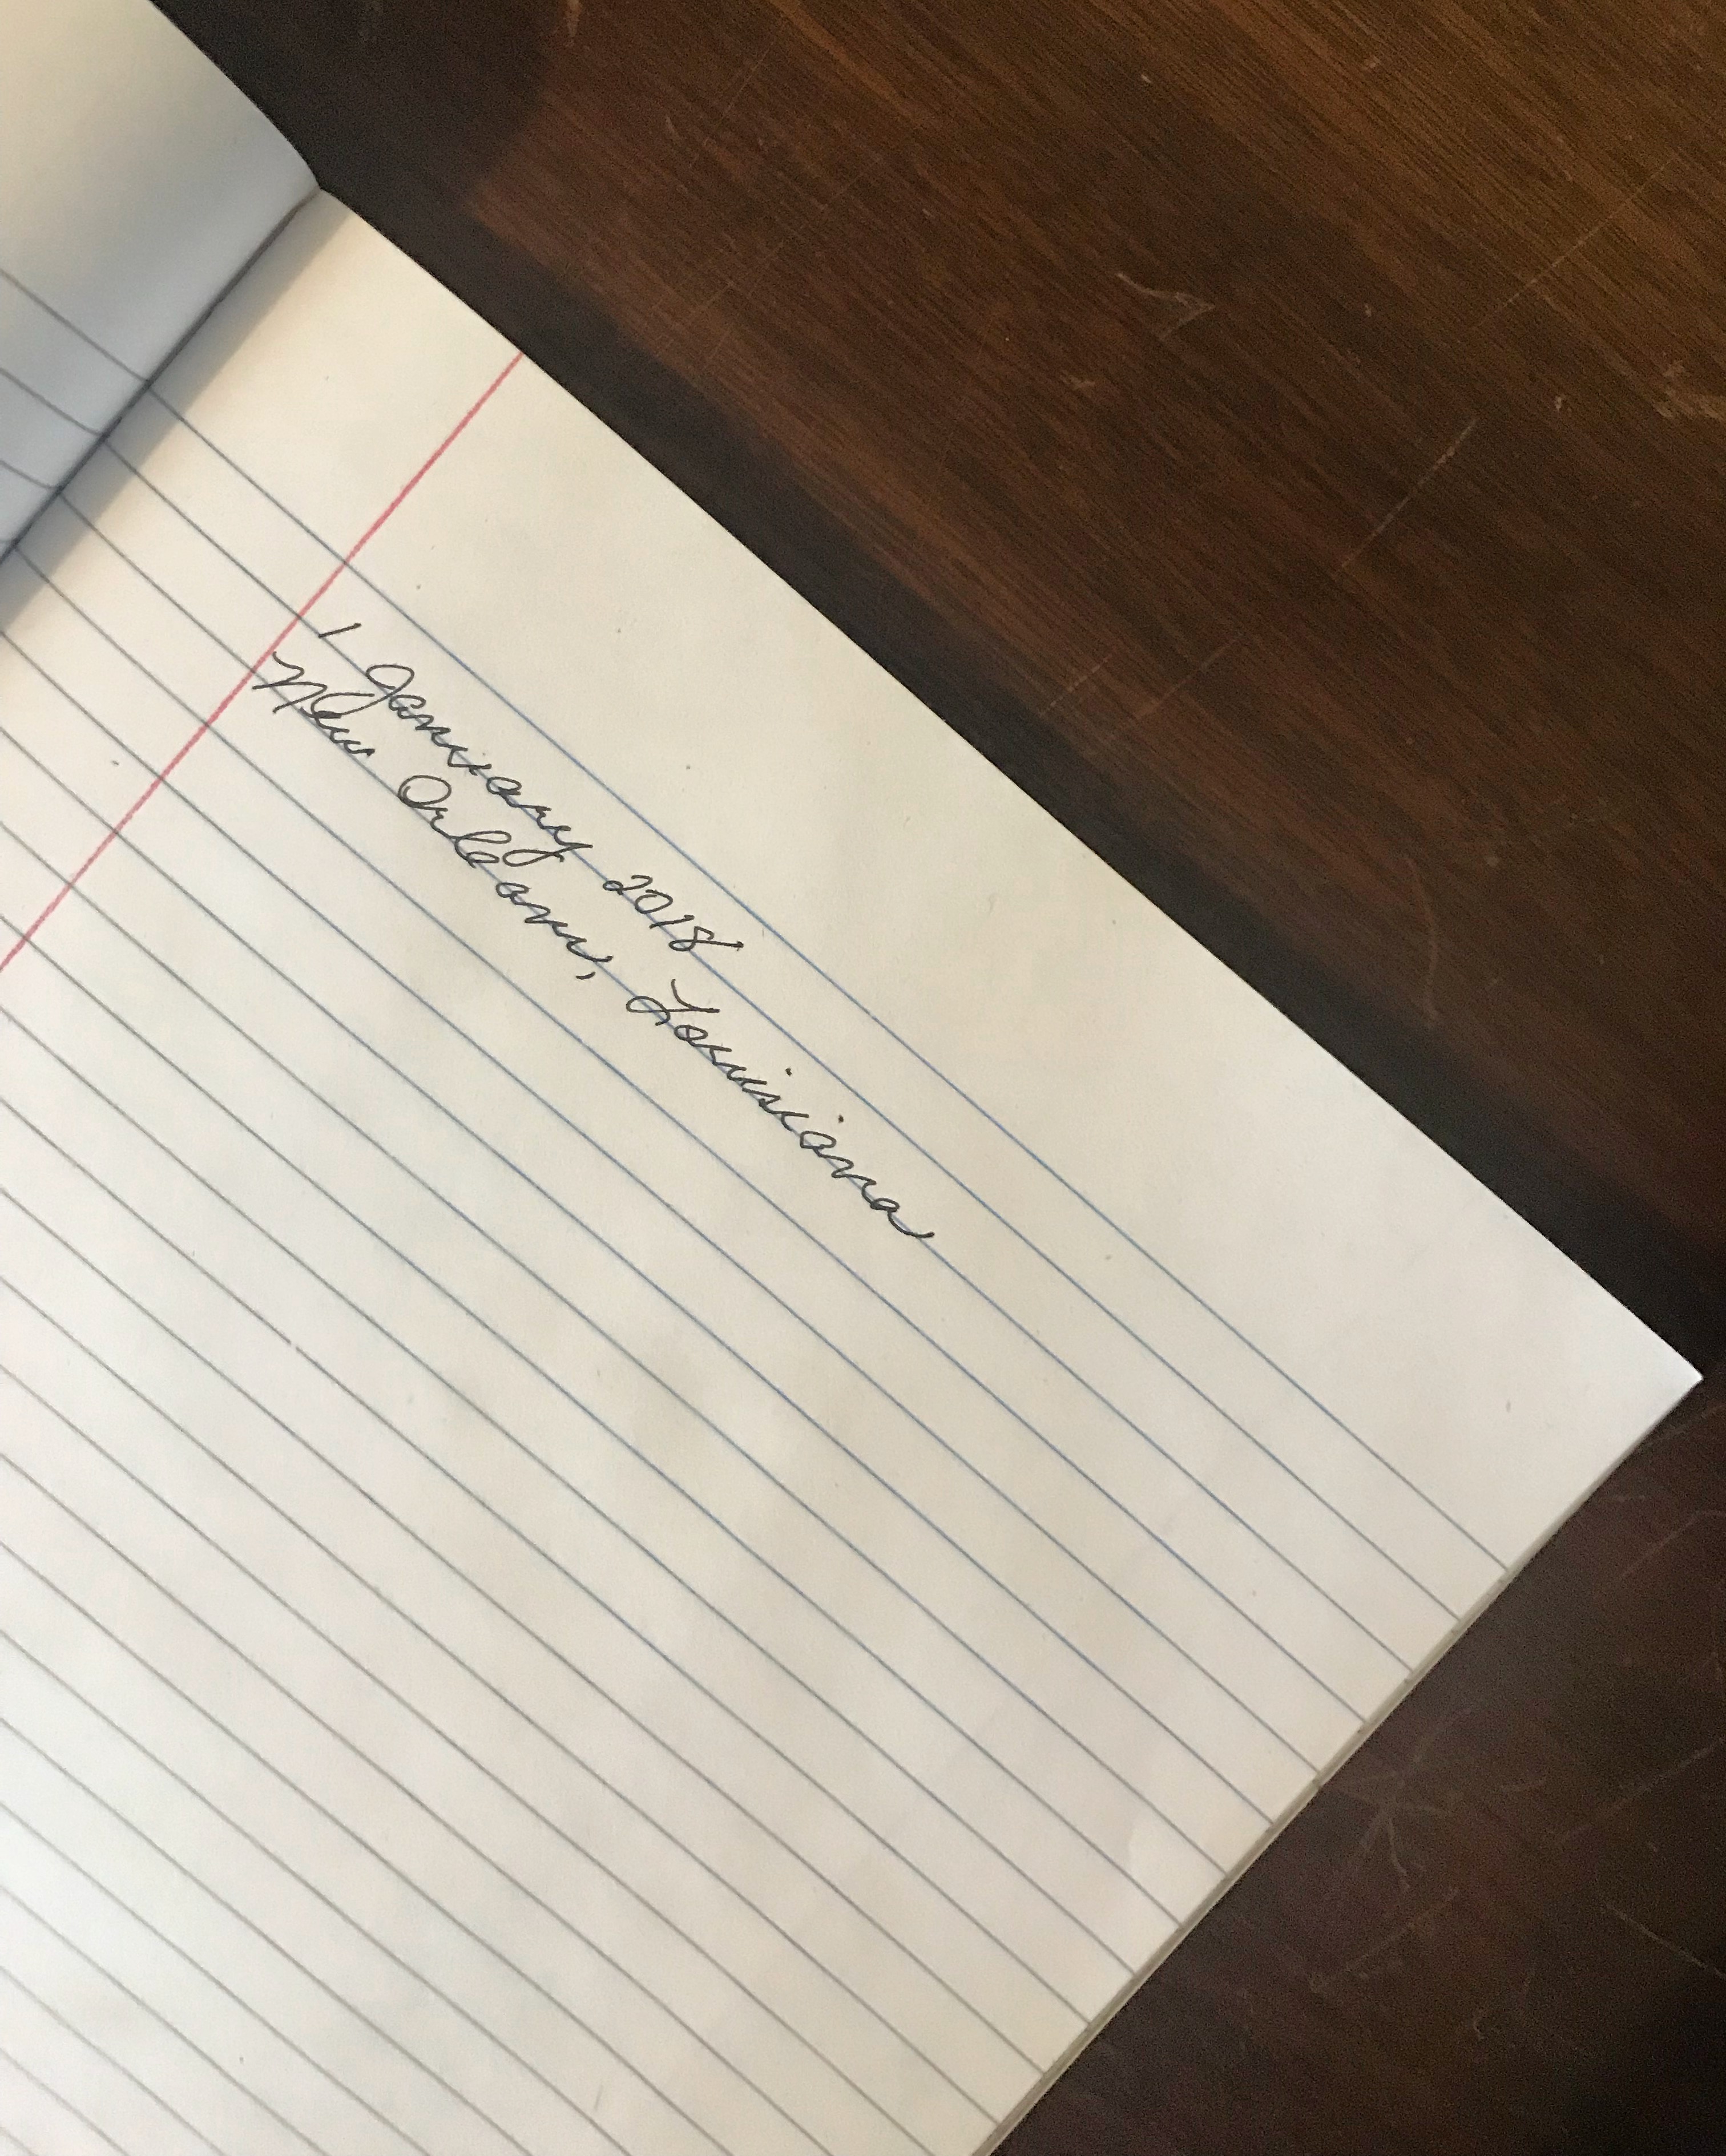 1 January 2018
New Orleans, Louisiana